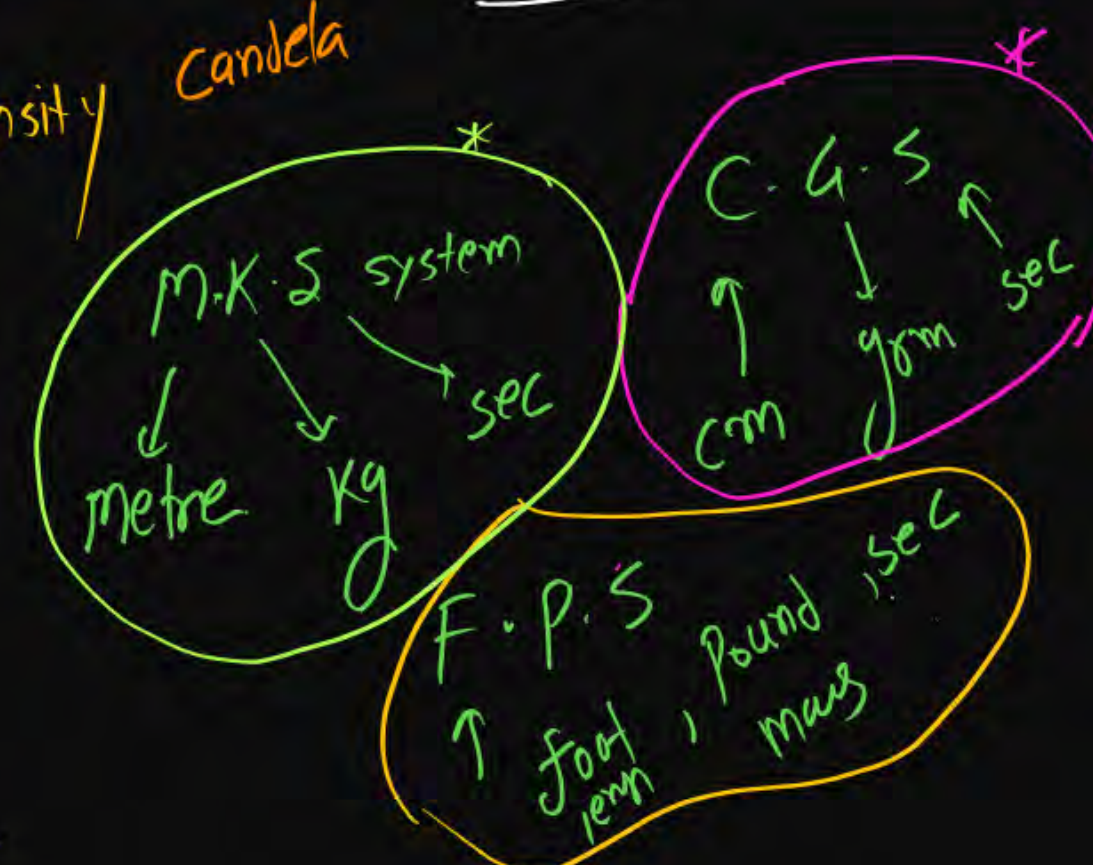 nsity Candela
M.K.S system
metre Kg sec
C.G.S
cm grm sec
F.P.S
foot, Pound, sec
mass